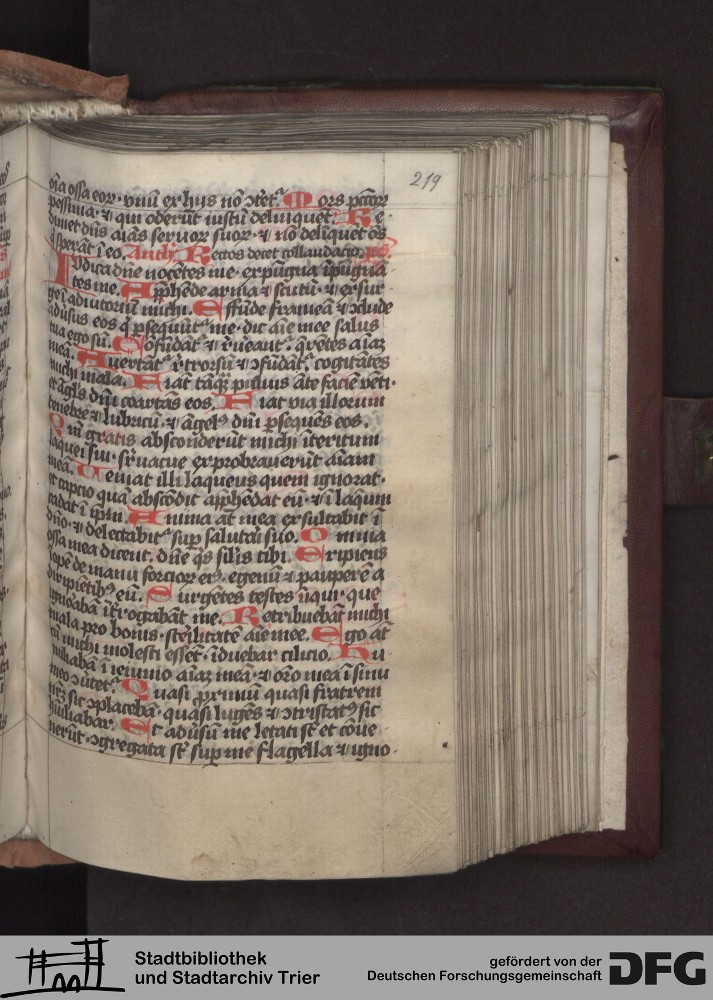 219
o͞ia ossa eor· vnū ex hijs nō ↄtet᷑. Mors pctōr
pessima: ⁊ qui oderūt iustū delinquēt. Re
dimet dn̄s aīas seruor suor· ⁊ nō delīquēt ōs
q̄ sperāt ī eo. Anth̄ Rectos decet collaudacio. ps̄.
IVdica dn̄e nocētes me· expūgna īpugnā
tes me. Apphēde arma ⁊ scutū· ⁊ exsur
ge ī adiutoriū michi. Effūde frameā ⁊ ↄclude
adūsus eos q̄ ꝑsequūt᷑ me· dic aīe mee salus
tua ego sū. Cōfūdāt᷑ ⁊ r̄ueant᷑· q̄rētes aīaꝫ
meā. Auertāt᷑ r̄trorsū ⁊ ↄfūdāt᷑ cogitātes
michi mala. Fiāt tāq̄ꝫ puluis āte faciē vēti·
et āgl̄s dn̄i coartās eos. Fiat via illorum
tenebre ⁊ lubricū· ⁊ āgel᷒ dn̄i ꝑsequēs eos.
Qm̄ gratis absconderūt michi īteritum
laquei sui· sr̄uacue exprobrauerūt aīam
meā. Ueniat illi laqueus quem ignorat·
et captio quā abscōdit apphēdat eū· ⁊ ī laqum
cadat ī ip̄m. Anima āt mea exsultabit ī
dn̄o· ⁊ delectabit᷑ suꝑ salutari suo. Omnia
ossa mea dicent· dn̄e q̄s sil̄is tibi. Eripiens
īopē de manu forcior ei᷒· egenū ⁊ pauperē a
diripiētib᷒ eū. Surgētes testes īiqui· que
ignorabā īt̄rogabāt me. Retribuebāt michi
mala pro bonis· sterilitatē aīe mee. Ego āt
cū michi molesti essēt· īduebar cilicio. Hu
miliabā ī ieiunio aīaꝫ meā· ⁊ orō mea ī sinu
meo ↄūtet᷑. Quasi ꝓximū quasi fratrem
nr̄ꝫ sic ↄplacebā· quasi lugēs ⁊ ↄtristat᷒ sic
hūiliabar. Et adūsū me letati st̄ et cōue
nerūt· ↄgregata st̄ suꝑ me flagella ⁊ igno·
Stadtbibliothek
und Stadtarchiv Trier
gefördert von der
Deutschen Forschungsgemeinschaft
DFG